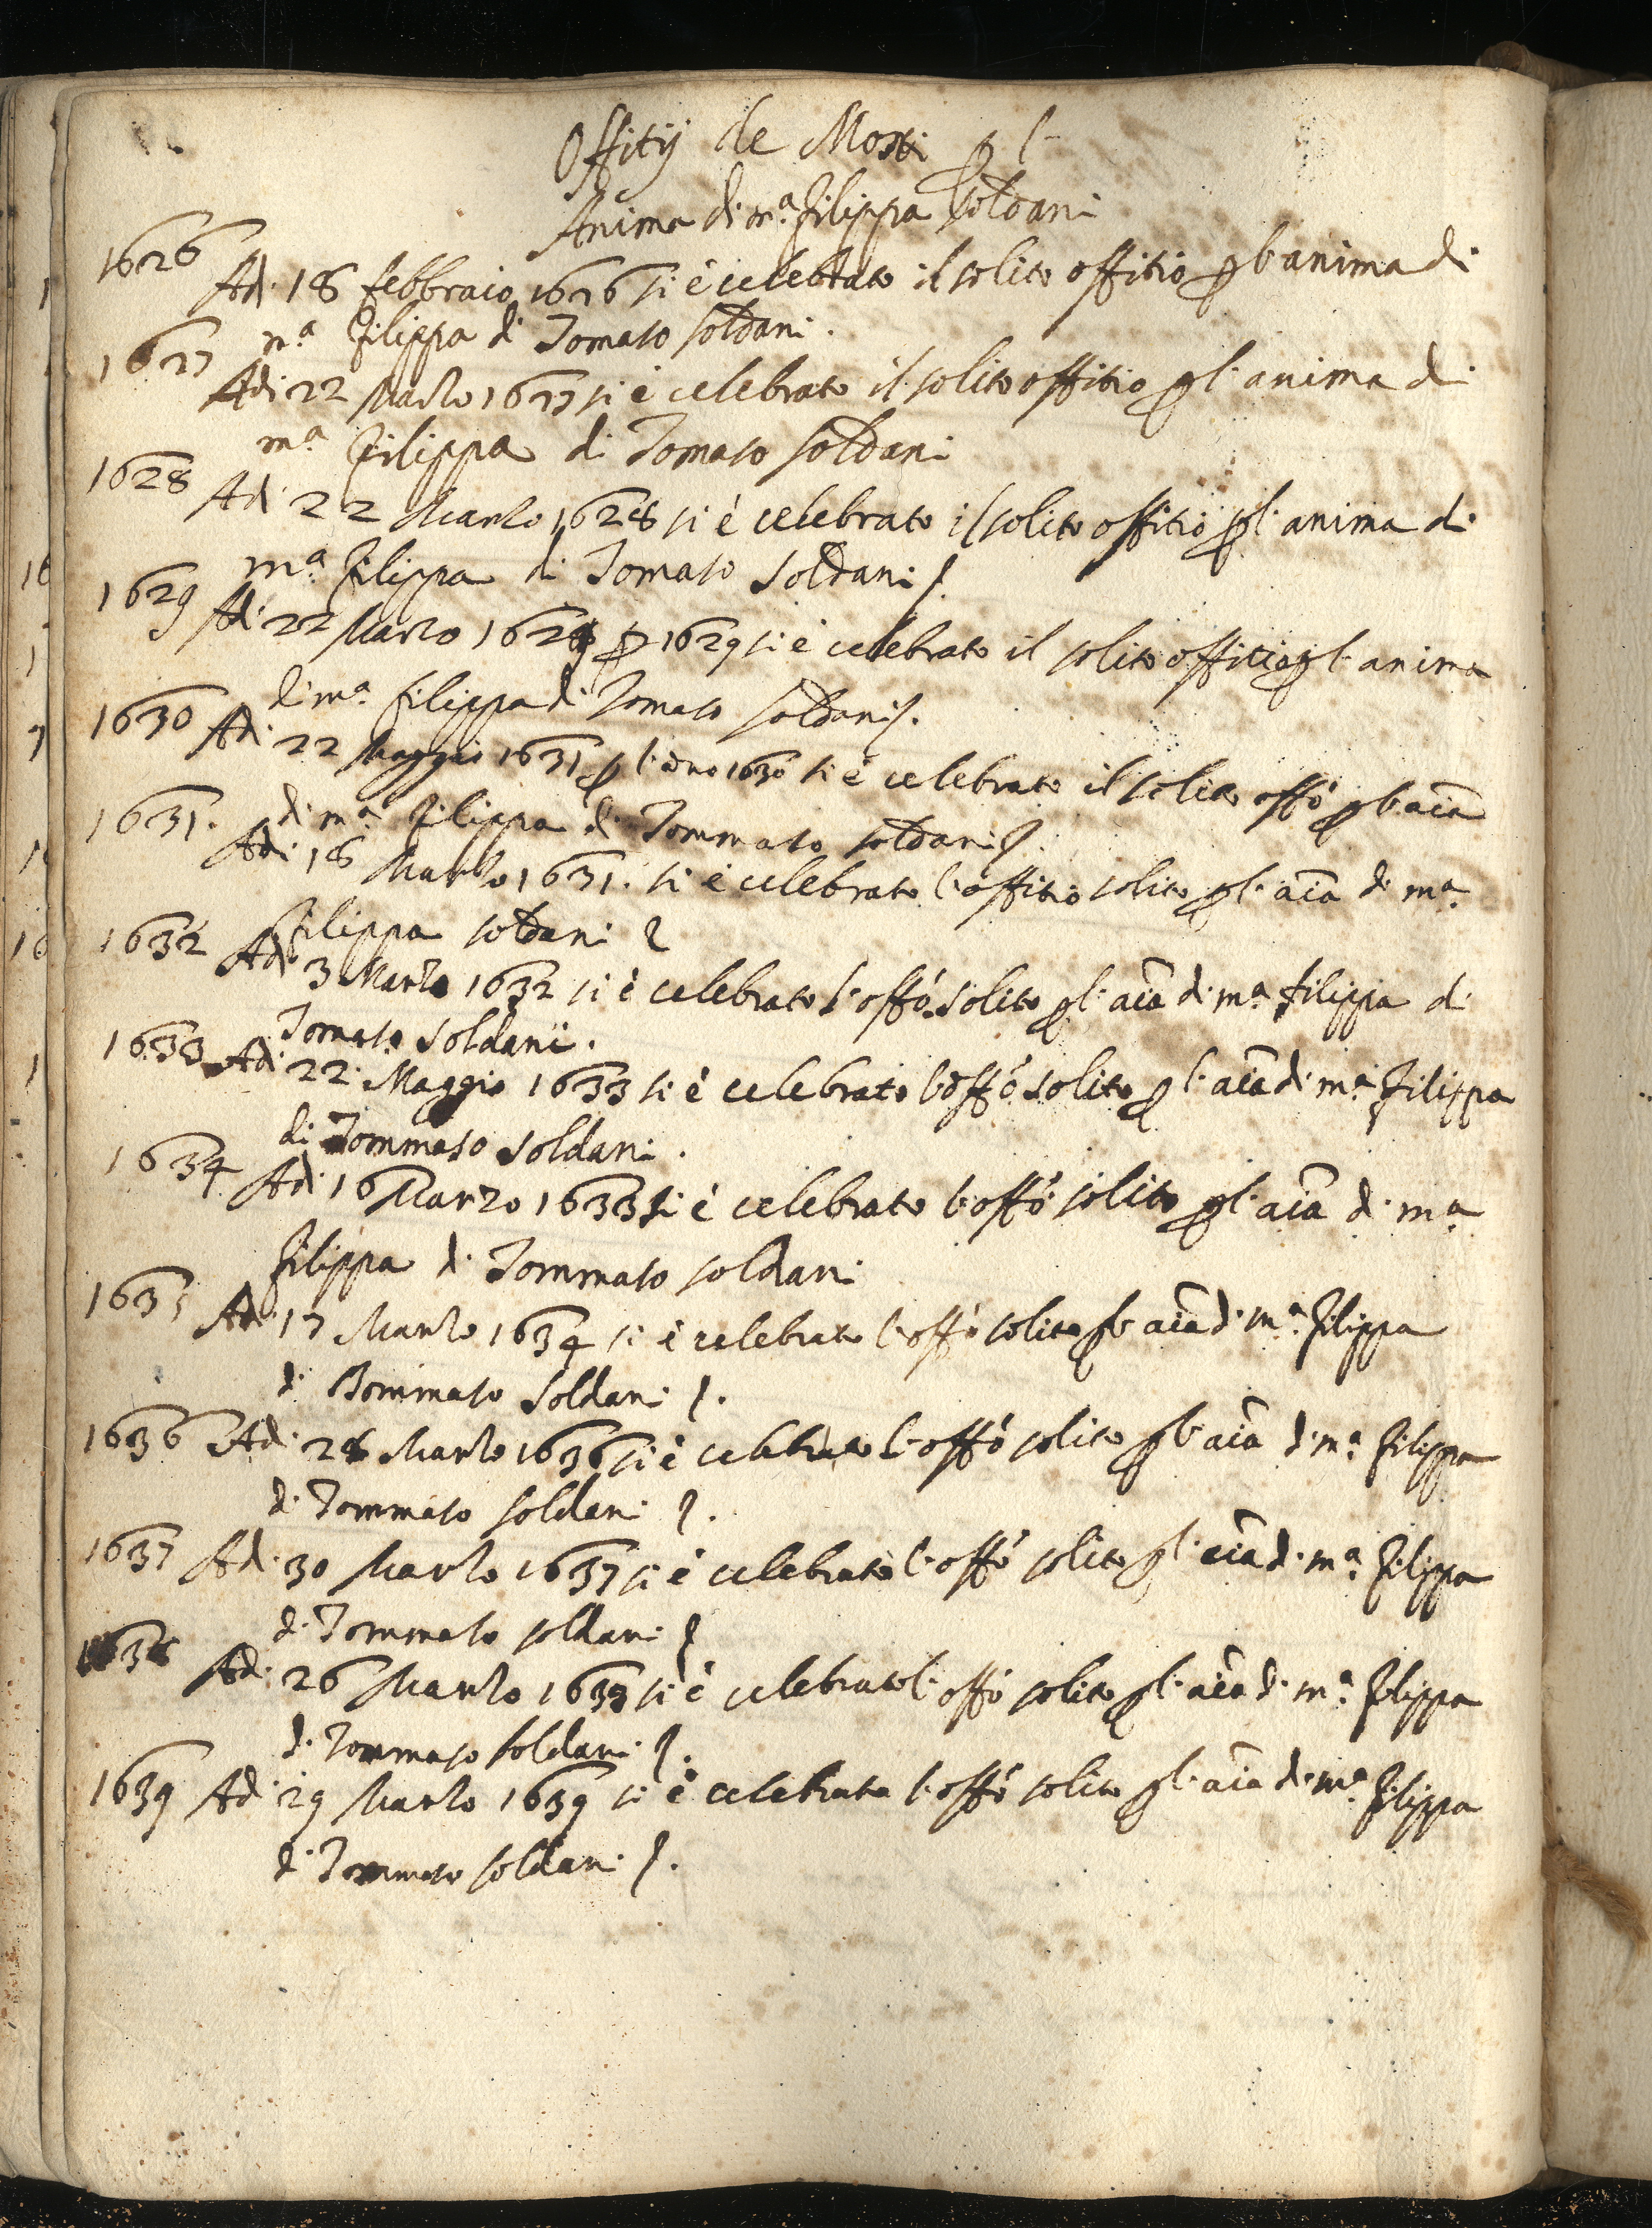 Offitij de Morti p l'
Anima di m.ª Filippa Soldani
1626 Adi 18 febbraio 1626 si è celebrato il solito offitio p l'anima di
m.ª Filippa di Tomaso soldani.
1627 Adi 22 Marzo 1627 si è celebrato il solito offitio p l'anima di
m.ª Filippa di Tomaso soldani
1628 Adi 22 Marzo 1628 si è celebrato il solito offitio p l'anima di
m.ª Filippa di Tomaso Soldani
1629 Adi 22 Marzo 1629 p 1629 si è celebrato il solito offitio p l'anima
di m.ª filippa di Tomaso soldani.
1630 Adi 22 Maggio 1631 p l'anno 1630 si è celebrato il solito offo p l'aia
di m.ª Filippa di Tommaso soldani.
1631. Adi 18 Marzo 1631. si è celebrato l'offitio solito p l'aia di m.ª
Filippa soldani
1632 Adi 3 Marzo 1632 si è celebrato l'offo solito p l'aia di m.ª filippa di
Tomaso Soldani.
1633 Adi 22 Maggio 1633 si è celebrato l'offo solito p l'aia di m.ª Filippa
di Tommaso soldani.
1634 Adi 16 Marzo 1633 si è celebrato l'offo solito p l'aia di m.ª
Filippa di Tommaso soldani
1635 Adi 17 Marzo 1634 si è celebrato l'offo solito p l'aia di m.ª Filippa
di Tommaso Soldani.
1636 Adi 28 Marzo 1636 si è celebrato l'offo solito p l'aia di m.ª Filippa
di Tommaso soldani.
1637 Adi 30 Marzo 1637 si è celebrato l'offo solito p l'aia di m.ª Filippa
di Tommaso soldani
1638 Adi 26 Marzo 1638 si è celebrato l'offo solito p l'aia di m.ª Filippa
di Tommaso soldani.
1639 Adi 29 Marzo 1639 si è celebrato l'offo solito p l'aia di m.ª Filippa
di Tommaso soldani.